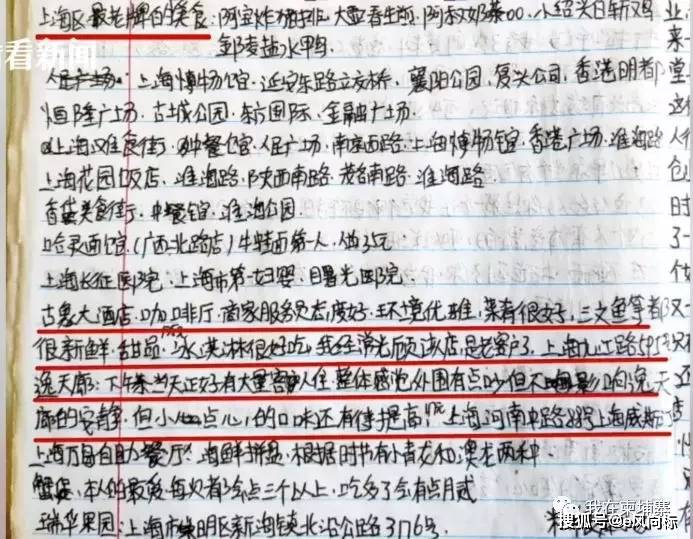 看看新闻
上海区最老牌的美食:阿宝炸猪排、大壶春生煎、阿叔奶茶00、小绍兴白斩鸡
盐水鸭
人民广场、上海博物馆、延安东路立交桥、襄阳公园、复兴公司、香港明都
恒隆广场、古城公园、东方国际、金融广场
上海美食街、中餐馆、人民广场、南京西路、上海博物馆、香港广场、淮海路
上海花园饭店、淮海路、陕西南路、茂名南路、淮海路
美食街、中餐馆、淮海公园
哈灵面馆、(广西北路店)牛蛙面第一、人均25元
上海长征医院、上海市第一妇婴、曙光医院
古象大酒店、咖啡厅、商家服务员态度好、环境优雅、菜肴很好、三文鱼等都
很新鲜、甜品、冰淇淋很好吃、我经常光顾该店是老客户了、上海九江路595号
逸天廊:下午茶当天正好有大量客人住、整体感觉外围有点吵但不影响逸天
廊的安静、但小点心、的口味还有待提高、上海河南中路88号上海威斯汀
上海万易自助餐厅、海鲜拼盘、根据时节有小青龙和澳龙两种
蟹皇、本人的最爱每次有会点三个以上、吃多了会有点负贰
瑞华果园:上海市崇明区新海镇北沿公路3176号
我在柬埔寨
搜狐号@风向标